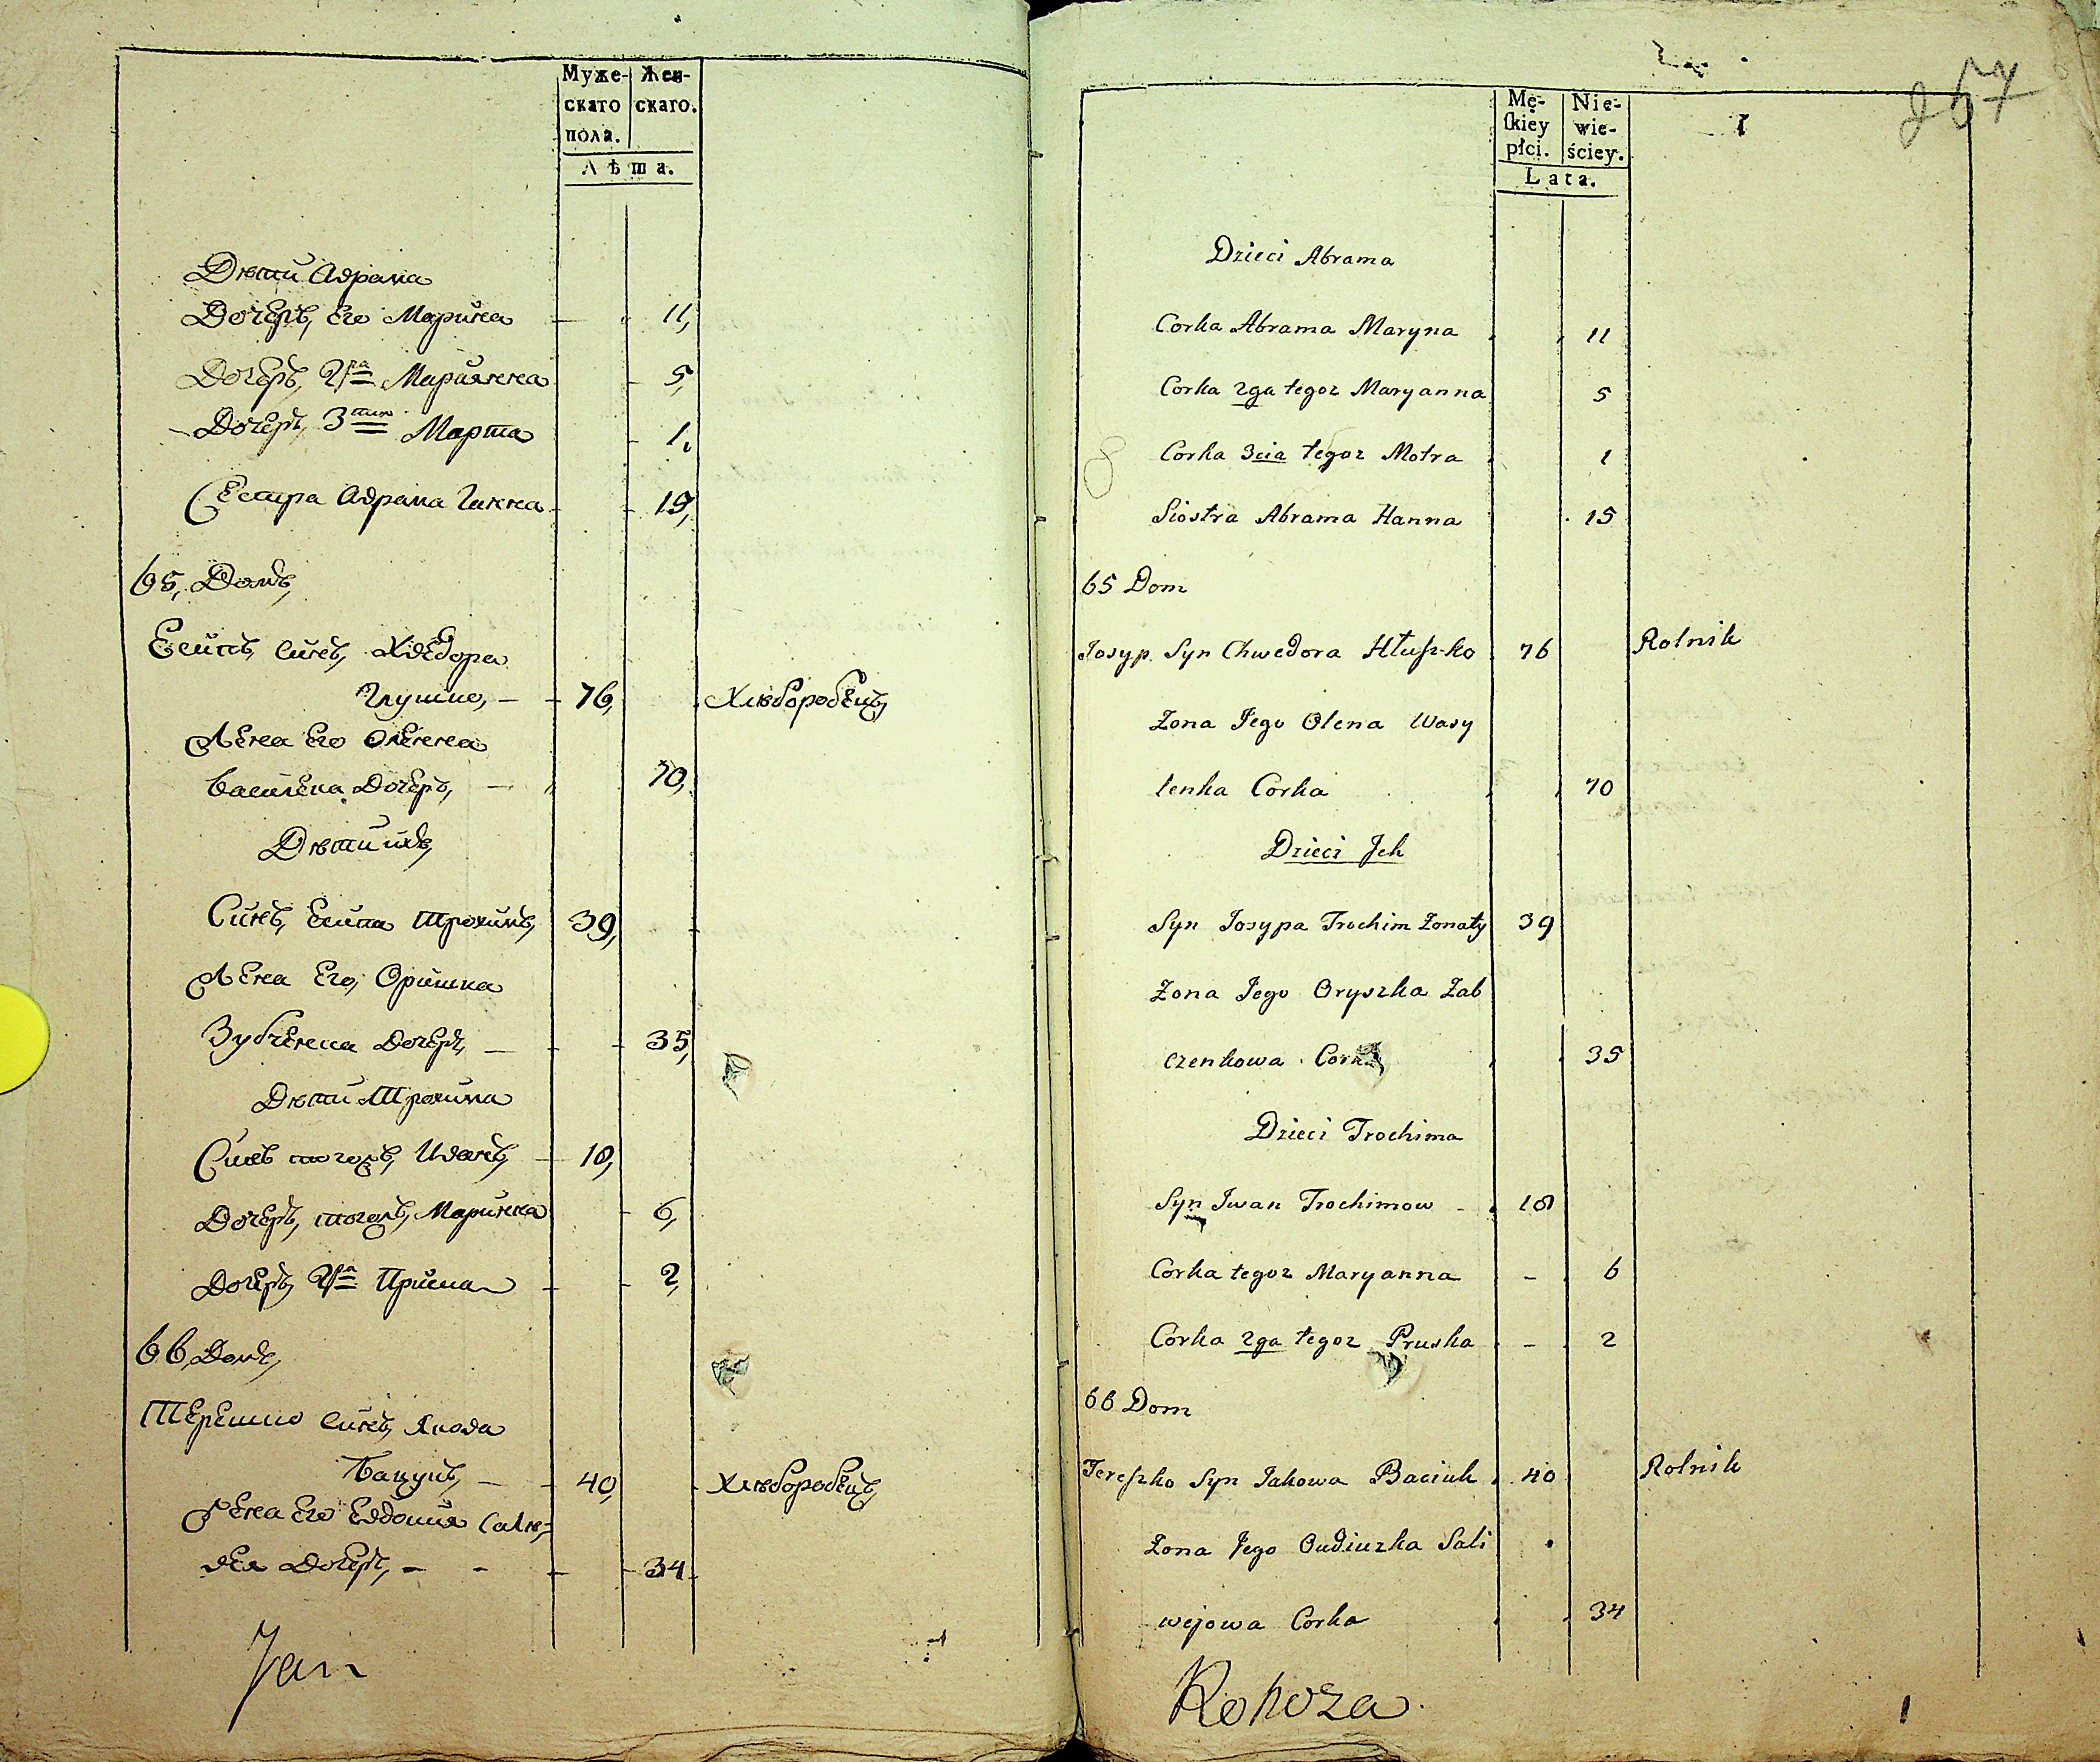 Муже-
скаго
пола.
Жен-
скаго.
Лѣта.
Дѣти Аврама
Дочеръ, Его Марина - 11,
Дочеръ, 2я Марияння - 5,
Дочеръ, 3тия Марта - 1,
Сестра Аврама Ганна - 15,
65, Домъ,
Есипъ, Синъ, Хведора
Глушко, - 76, Хлѣборобецъ,
Жена Его Оленна
Василека Дочеръ, - 70,
Дѣти ихъ,
Синъ, Есипа Трохимъ, 39,
Жена Его, Оришка
Зубченка Дочеръ, - 35,
Дѣти Трохима
Синъ тогожъ, Иванъ, 10,
Дочеръ, тогожъ, Маринна - 6,
Дочеръ, 2я Приска - 2,
66, Домъ,
Терешко Синъ, Якова
Бацукъ, - 40, Хлѣборобецъ,
Жена Его Евдокия Салѣ-
вея Дочеръ, - 34
Jan
257
Mę-
ſkiey
płci.
Nie-
wie-
ściey.
Lata.
Dzieci Abrama
Corka Abrama Maryna 11
Corka 2ga tegoz Maryanna 5
Corka 3cia tegoz Motra 1
Siostra Abrama Hanna 15
65 Dom
Josyp Syn Chwedora Hłuſzko 76 Rolnik
Zona Jego Olena Wasy
lenka Corka 70
Dzieci Jch
Syn Josypa Trochim Zonaty 39
Zona Jego Oryszka Zab
czenkowa Corka 35
Dzieci Trochima
Syn Jwan Trochimow - 10
Corka tegoz Maryanna - 6
Corka 2ga tegoz Pruska - 2
66 Dom
Tereſzko Syn Jakowa Baciuk 40 Rolnik
Zona Jego Oudiuzka Sali
wejowa Corka 34
Rohoza